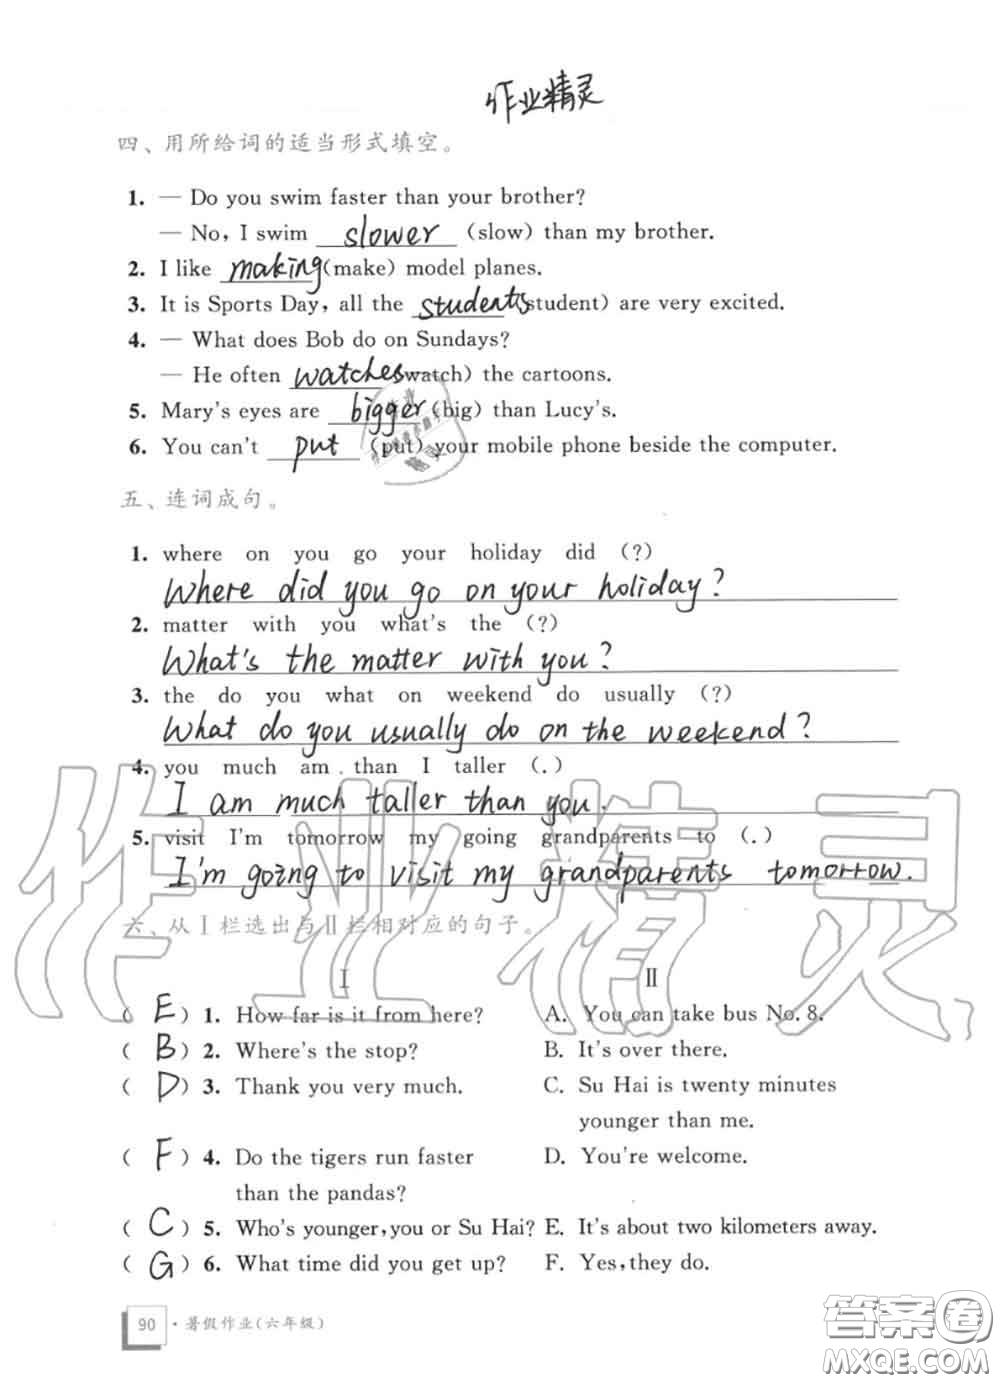 作业精灵
四、用所给词的适当形式填空。
1. — Do you swim faster than your brother?
— No, I swim slower (slow) than my brother.
2. I like making (make) model planes.
3. It is Sports Day, all the students (student) are very excited.
4. — What does Bob do on Sundays?
— He often watches (watch) the cartoons.
5. Mary's eyes are bigger (big) than Lucy's.
6. You can't put (put) your mobile phone beside the computer.
五、连词成句。
1. where on you go your holiday did (?)
Where did you go on your holiday?
2. matter with you what's the (?)
What's the matter with you?
3. the do you what on weekend do usually (?)
What do you usually do on the weekend?
4. you much am than I taller (.)
I am much taller than you.
5. visit I'm tomorrow my going grandparents to (.)
I'm going to visit my grandparents tomorrow.
作业精灵
六、从Ⅰ栏选出与Ⅱ栏相对应的句子。
Ⅰ Ⅱ
( E ) 1. How far is it from here? A. You can take bus No. 8.
( B ) 2. Where's the stop? B. It's over there.
( D ) 3. Thank you very much. C. Su Hai is twenty minutes
younger than me.
( F ) 4. Do the tigers run faster D. You're welcome.
than the pandas?
( C ) 5. Who's younger, you or Su Hai? E. It's about two kilometers away.
( G ) 6. What time did you get up? F. Yes, they do.
90 · 暑假作业(六年级)
答案圈
MXQE.COM